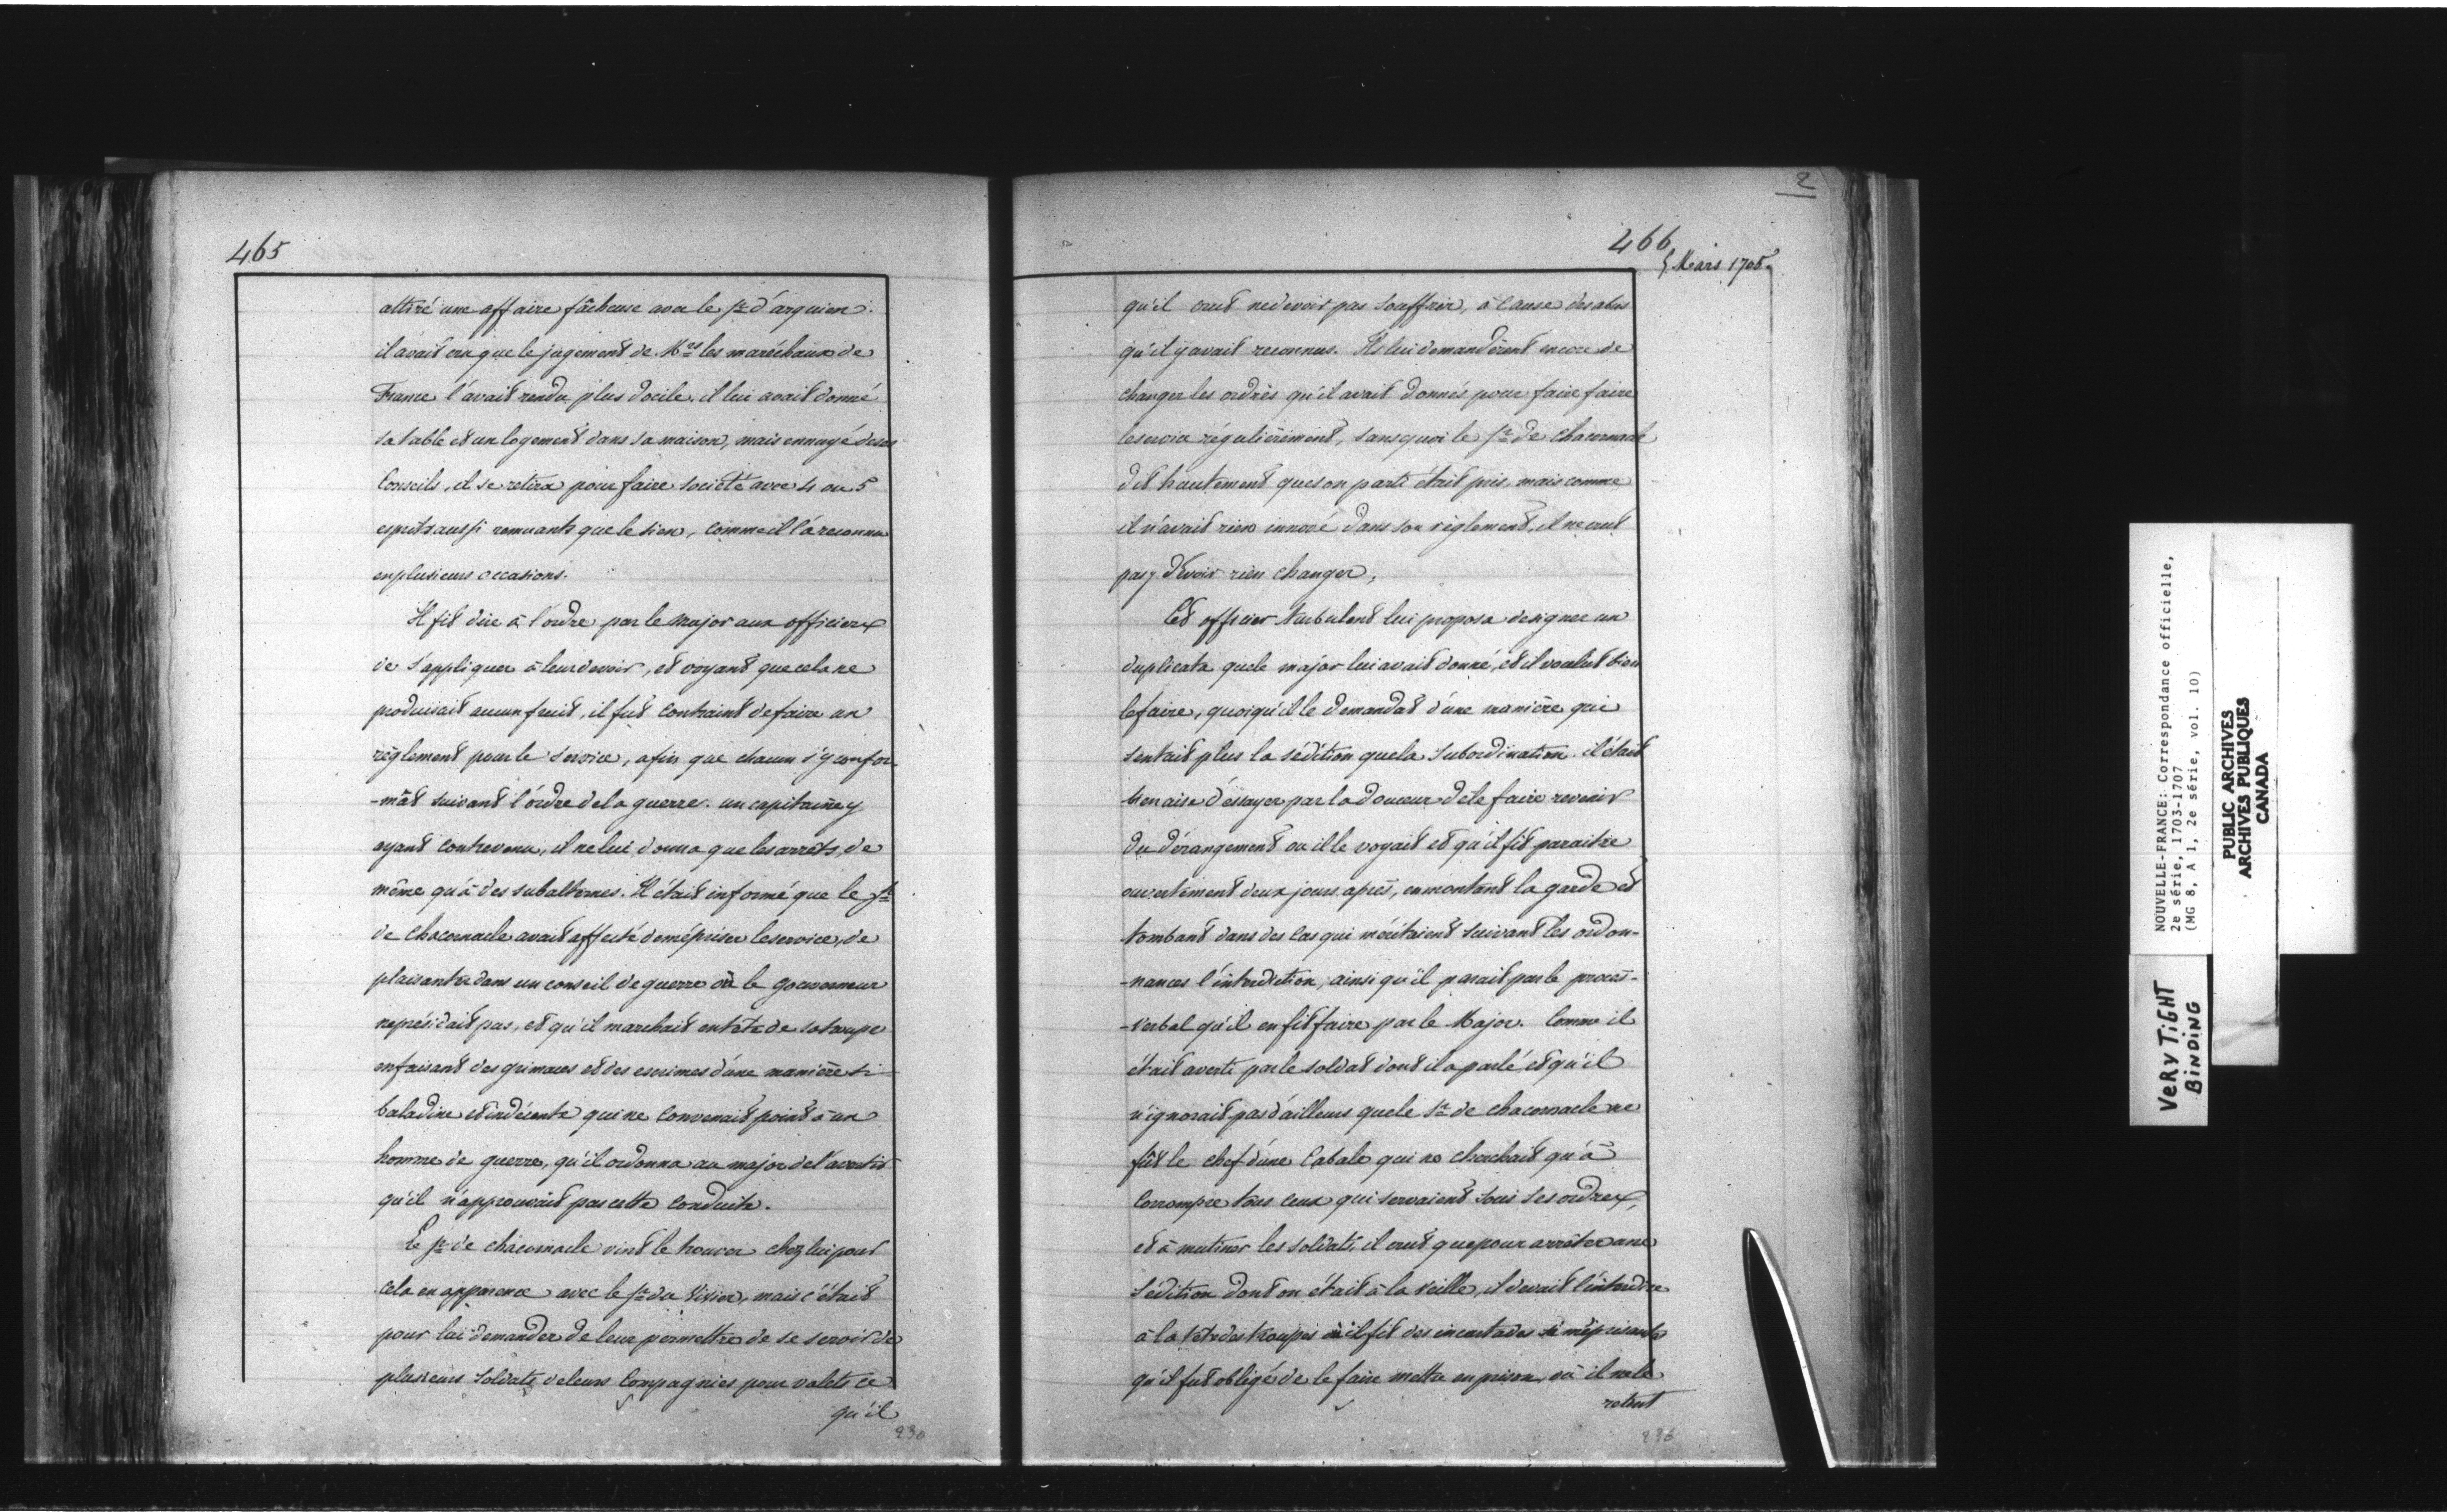 465
attiré une affaire fâcheuse avec le Sr d'arquien.
il avait cru que le jugement de Mrs les maréchaux de
France l'avait rendu plus docile. il lui avait donné
sa table et un logement dans sa maison, mais ennuyé de ses
Conseils, il se retira pour faire société avec 4 ou 5
esprits aussi remuants que le sien, comme il l'a reconnu
en plusieurs occasions.
Il fit dire à l'ordre par le Major aux officiers
de s'appliquer à leur devoir, et voyant que cela ne
produisait aucun fruit, il fut contraint de faire un
règlement pour le service, afin que chacun s'y confor-
-mât suivant l'ordre de la guerre. un capitaine y
ayant contrevenu, il ne lui donna que les arrêts, de
même qu'à des subalternes. Il était informé que le Sr
de Chacornacle avait affecté de mépriser le service, de
plaisanter dans un conseil de guerre où le gouverneur
ne présidait pas, et qu'il marchait en tête de sa troupe
en faisant des grimaces et des escrimes d'une manière si
baladine et indécente qui ne convenait point à un
homme de guerre, qu'il ordonna au major de l'avertir
qu'il n'approuvait pas cette conduite.
Le Sr de chacornacle vint le trouver chez lui pour
cela en apparence avec le Sr du Vivier, mais c'était
pour lui demander de leur permettre de se servir de
plusieurs soldats de leurs Compagnies pour valets ce
qu'il
230
2
466
5 Mars 1705.
qu'il crut ne devoir pas souffrir, à cause des abus
qu'il y avait reconnus. Ils lui demandèrent encore de
changer les ordres qu'il avait donnés pour faire faire
le service régulièrement, sans quoi le Sr de Chacornacle
dit hautement que son parti était pris, mais comme
il n'avait rien innové dans son règlement, il ne crut
pas y devoir rien changer,
Cet officier turbulent lui proposa de signer un
duplicata que le major lui avait donné, et il voulut bien
le faire, quoiqu'il le demandat d'une manière qui
sentait plus la sédition que la subordination. il était
bien aise d'essayer par la douceur de le faire revenir
du dérangement ou il le voyait et qu'il fit paraitre
ouvertement deux jours après, en montant la garde et
tombant dans des Cas qui méritaient suivant les ordon-
-nances l'interdiction, ainsi qu'il parait par le procès-
-verbal qu'il en fit faire par le Major. Comme il
était averti par le soldat dont il a parlé et qu'il
n'ignorait pas d'ailleurs que le Sr de chacornacle ne
fût le chef d'une Cabale qui ne cherchait qu'à
Corrompre tous ceux qui servaient sous ses ordres,
et à mutiner les soldats, il crut que pour arrêter une
Sédition dont on était à la veille, il devait l'interdire
à la tête des troupes où il fit des incartades si méprisantes
qu'il fut obligé de le faire mettre en prison, où il ne le
retint
236
NOUVELLE-FRANCE: Correspondance officielle,
2e série, 1703-1707
(MG 8, A 1, 2e série, vol. 10)
PUBLIC ARCHIVES
ARCHIVES PUBLIQUES
CANADA
VERY TIGHT
BINDING